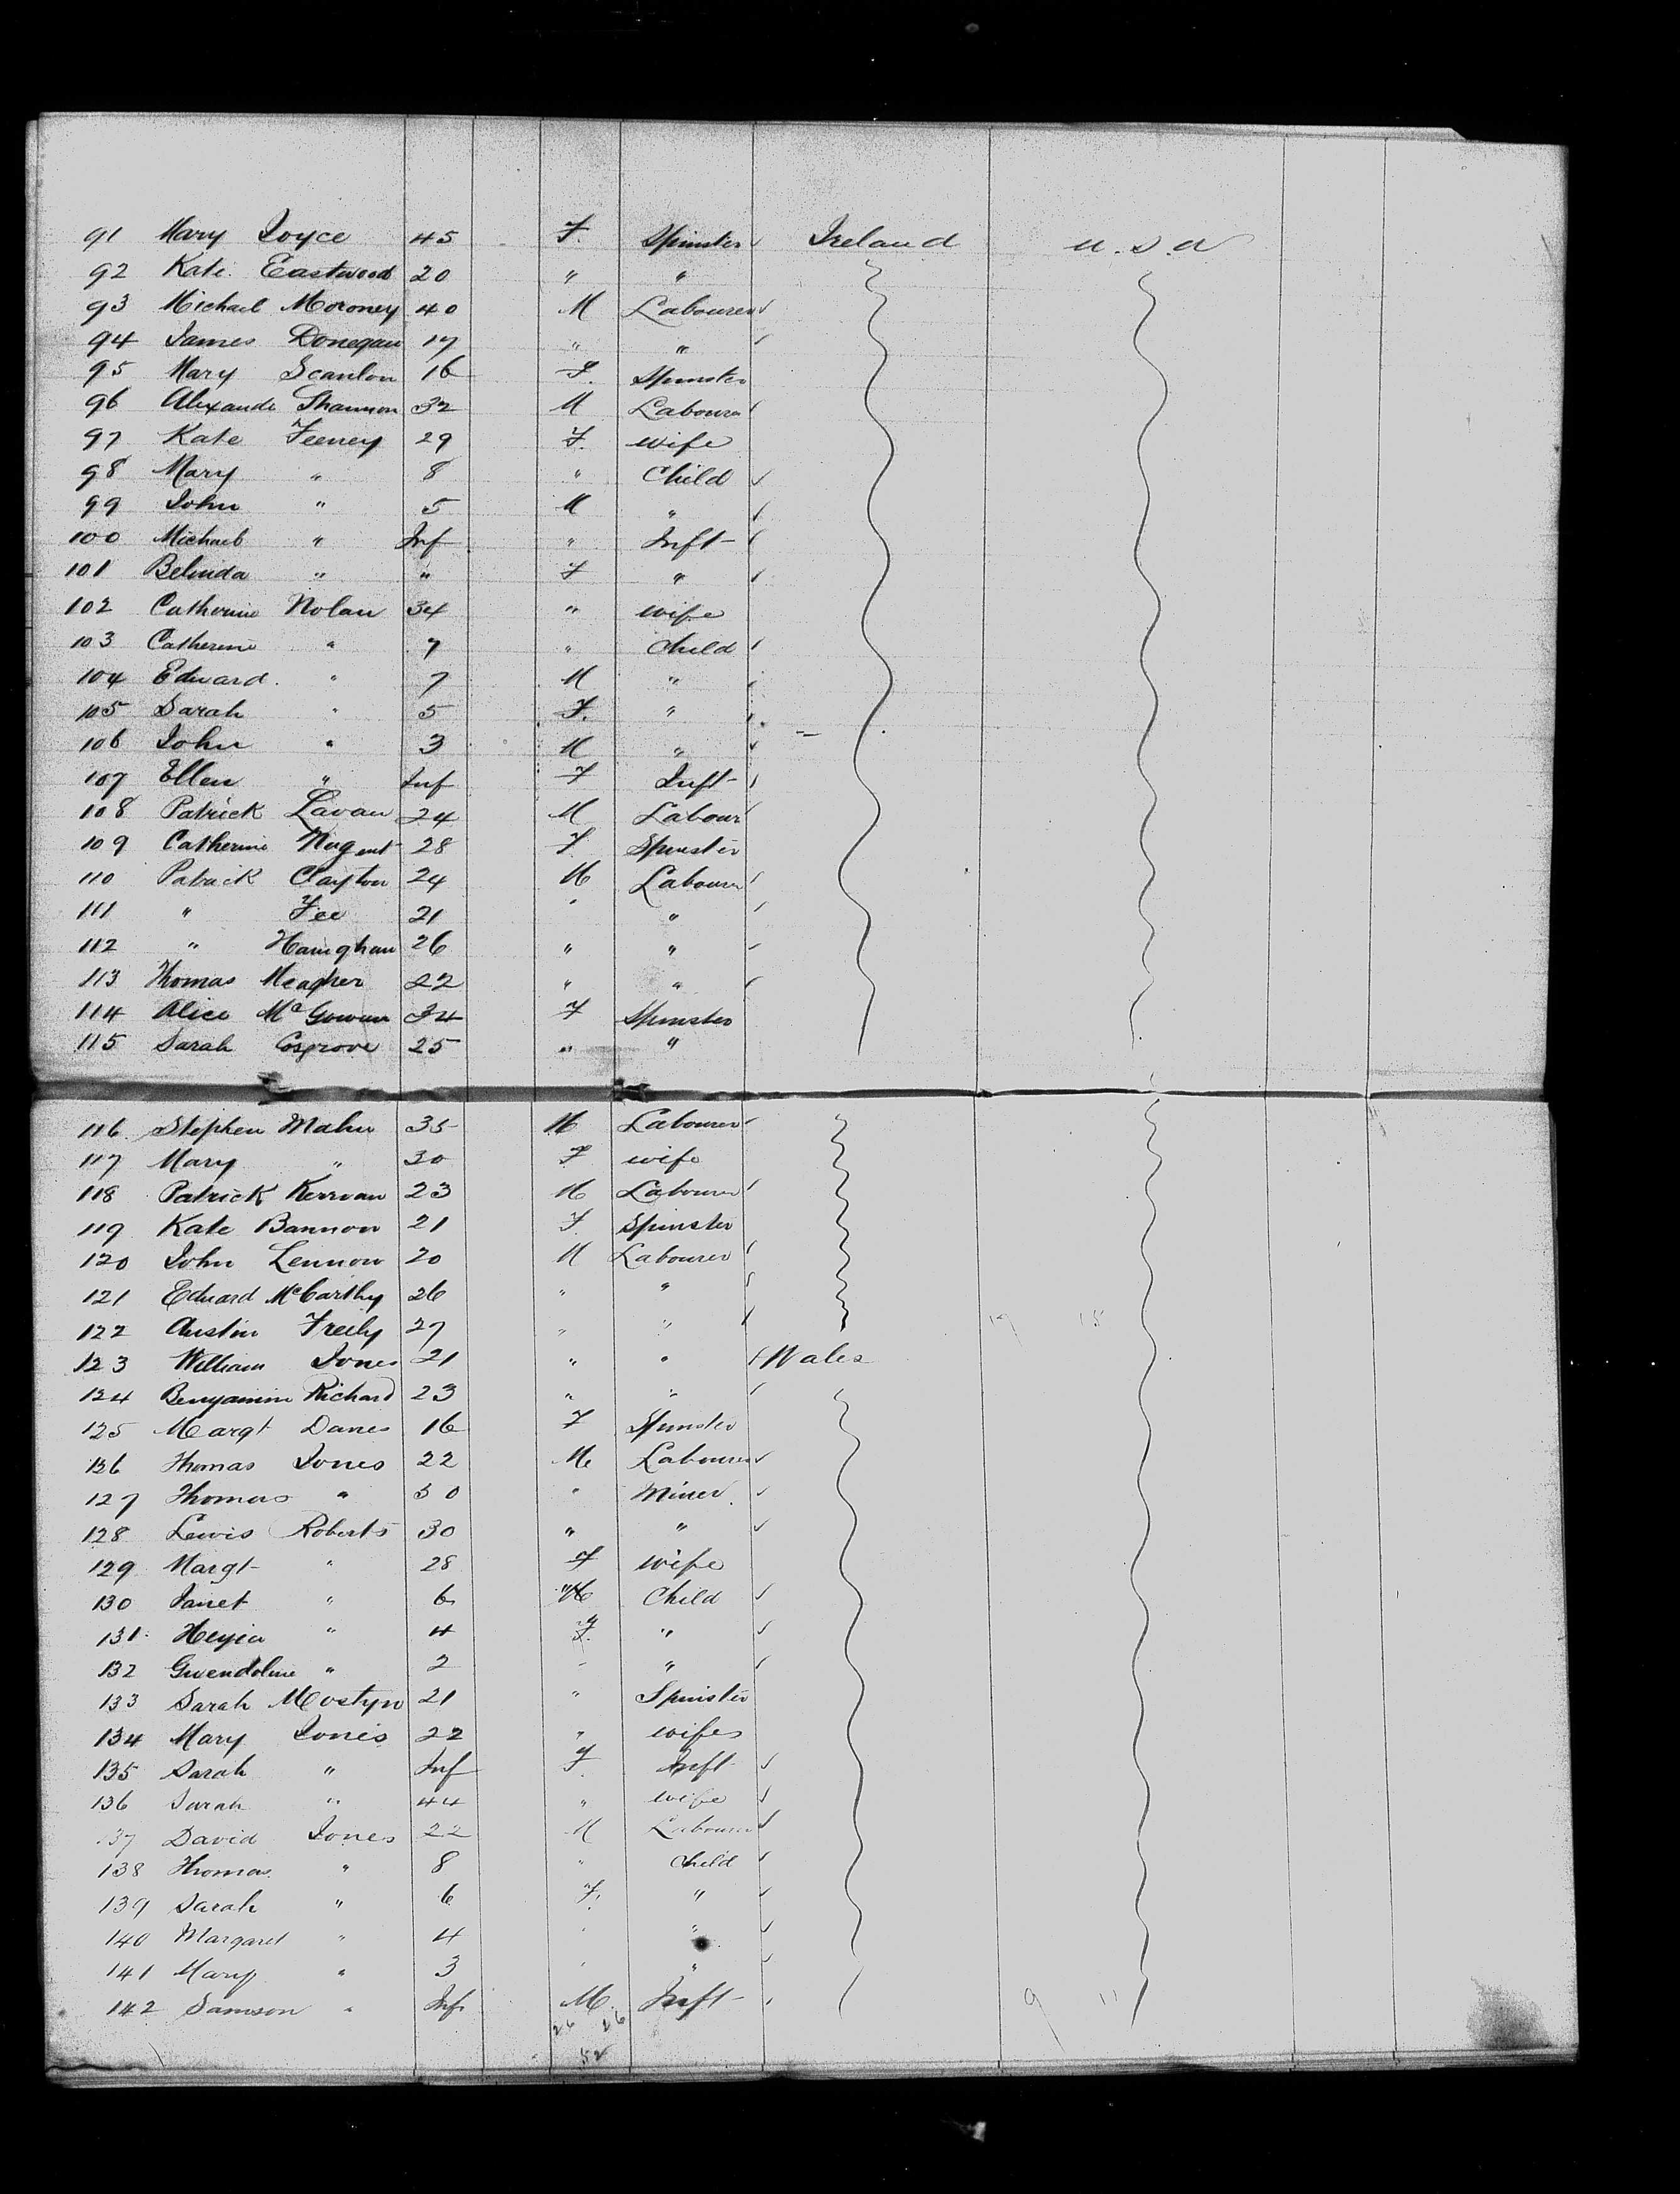 91 Mary Joyce 45 F. Spinster Ireland U.S.A
92 Kate Eastwood 20 " "
93 Michael Moroney 40 M Labourer
94 James Donegan 17 " "
95 Mary Scanlon 16 F. Spinster
96 Alexande Shannon 32 M Labourer
97 Kate Feeney 29 F. wife
98 Mary " 8 " Child
99 John " 5 M "
100 Michael " Inf " Inft
101 Belinda " " F "
102 Catherine Nolan 34 " wife
103 Catherine " 7 " Child
104 Edward " 7 M "
105 Sarah " 5 F. "
106 John " 3 M "
107 Ellen " Inf F Inft
108 Patrick Lavan 24 M Labour
109 Catherine Nugent 28 F Spinster
110 Patrick Clayton 24 M Labourer
111 " Fee 21 " "
112 " Hanighan 26 " "
113 Thomas Meagher 22 " "
114 Alice McGowan 34 F Spinster
115 Sarah Cosgrove 25 " "
116 Stephen Mahn 35 M Labourer
117 Mary " 30 F wife
118 Patrick Kerrvan 23 M Labourer
119 Kate Bannon 21 F Spinster
120 John Lennon 20 M Labourer
121 Edward McCarthy 26 " "
122 Austin Freely 27 " "
123 William Jones 21 " " Wales
124 Benjamin Richard 23 " "
125 Margt Danes 16 F Spinster
126 Thomas Jones 22 M Labourer
127 Thomas " 30 " Miner
128 Lewis Roberts 30 " "
129 Margt " 28 F wife
130 Janet " 6 " Child
131 " 4 F. "
132 Gwendoline " 2 " "
133 Sarah Mostyn 21 " Spinster
134 Mary Jones 22 " wife
135 Sarah " Inf F Inft
136 Sarah " 44 " wife
137 David Jones 22 M Labourer
138 Thomas " 8 " Child
139 Sarah " 6 F. "
140 Margaret " 4 " "
141 Mary " 3 " "
142 Samson " Inf M. Inft
26 26
52